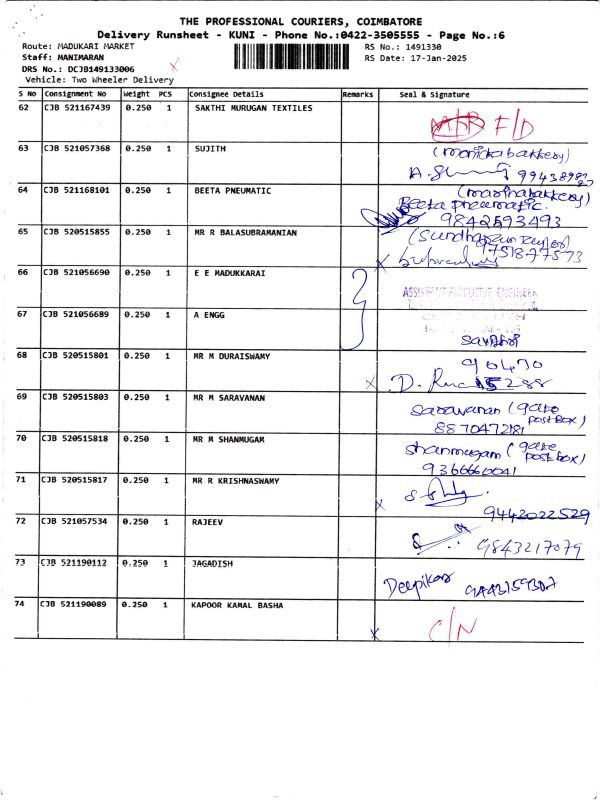 THE PROFESSIONAL COURIERS, COIMBATORE
Delivery Runsheet - KUNI - Phone No.:0422-3505555 - Page No.:6
Route: MADUKARI MARKET RS No.: 1491330
Staff: MANIMARAN RS Date: 17-Jan-2025
DRS No.: DCJB149133006
Vehicle: Two Wheeler Delivery
S No Consignment No Weight PCS Consignee Details Remarks Seal & Signature
62 CJB 521167439 0.250 1 SAKTHI MURUGAN TEXTILES
F/D
63 CJB 521057368 0.250 1 SUJITH
(monicka bakkery)
64 CJB 521168101 0.250 1 BEETA PNEUMATIC
Beeta pneumatic.
9842593493
65 CJB 520515855 0.250 1 MR R BALASUBRAMANIAN
9751877573
66 CJB 521056690 0.250 1 E E MADUKKARAI
ASSISTANT EXECUTIVE ENGINEER
67 CJB 521056689 0.250 1 A ENGG
68 CJB 520515801 0.250 1 MR M DURAISWAMY
90470
15288
69 CJB 520515803 0.250 1 MR M SARAVANAN
Saravanan (gate
post box)
8870472181
70 CJB 520515818 0.250 1 MR M SHANMUGAM
Shanmugam (gate
post box)
9366660041
71 CJB 520515817 0.250 1 MR R KRISHNASWAMY
9442022529
72 CJB 521057534 0.250 1 RAJEEV
9843217079
73 CJB 521190112 0.250 1 JAGADISH
Deepika
9443159307
74 CJB 521190089 0.250 1 KAPOOR KAMAL BASHA
C/N